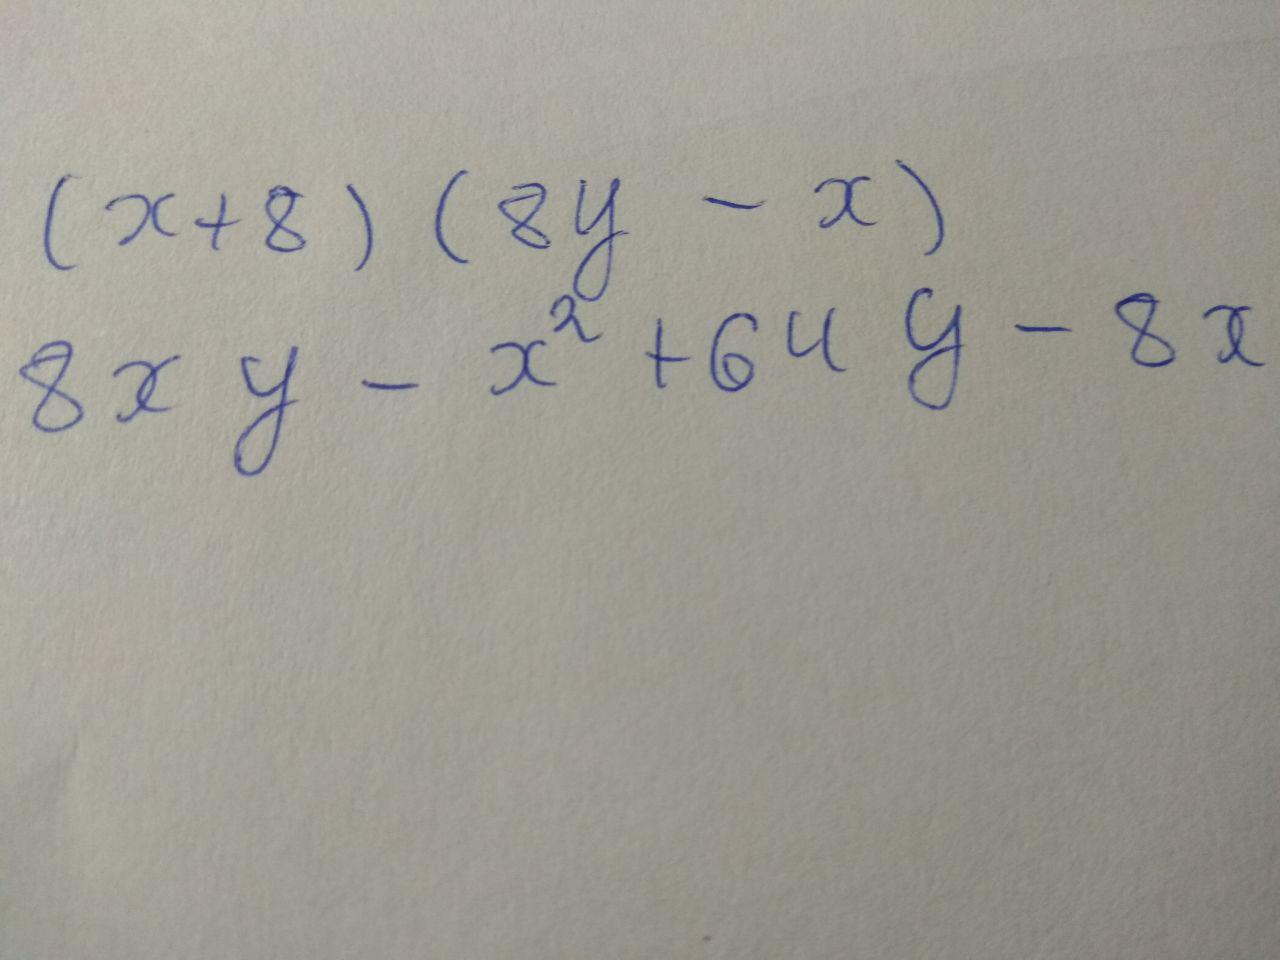 (x+8)(8y - x)
8xy - x² +64y - 8x